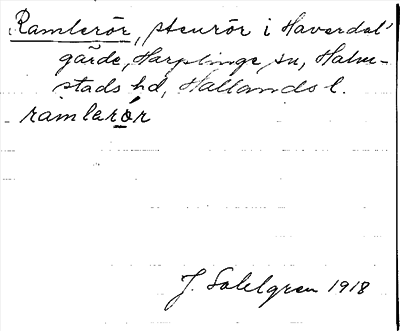 Ramlerör, stenrör i Haverdal'
gärde, Harplinge sn, Halm-
stads hd, Hallands l.
ramlerör
J. Sahlgren 1918